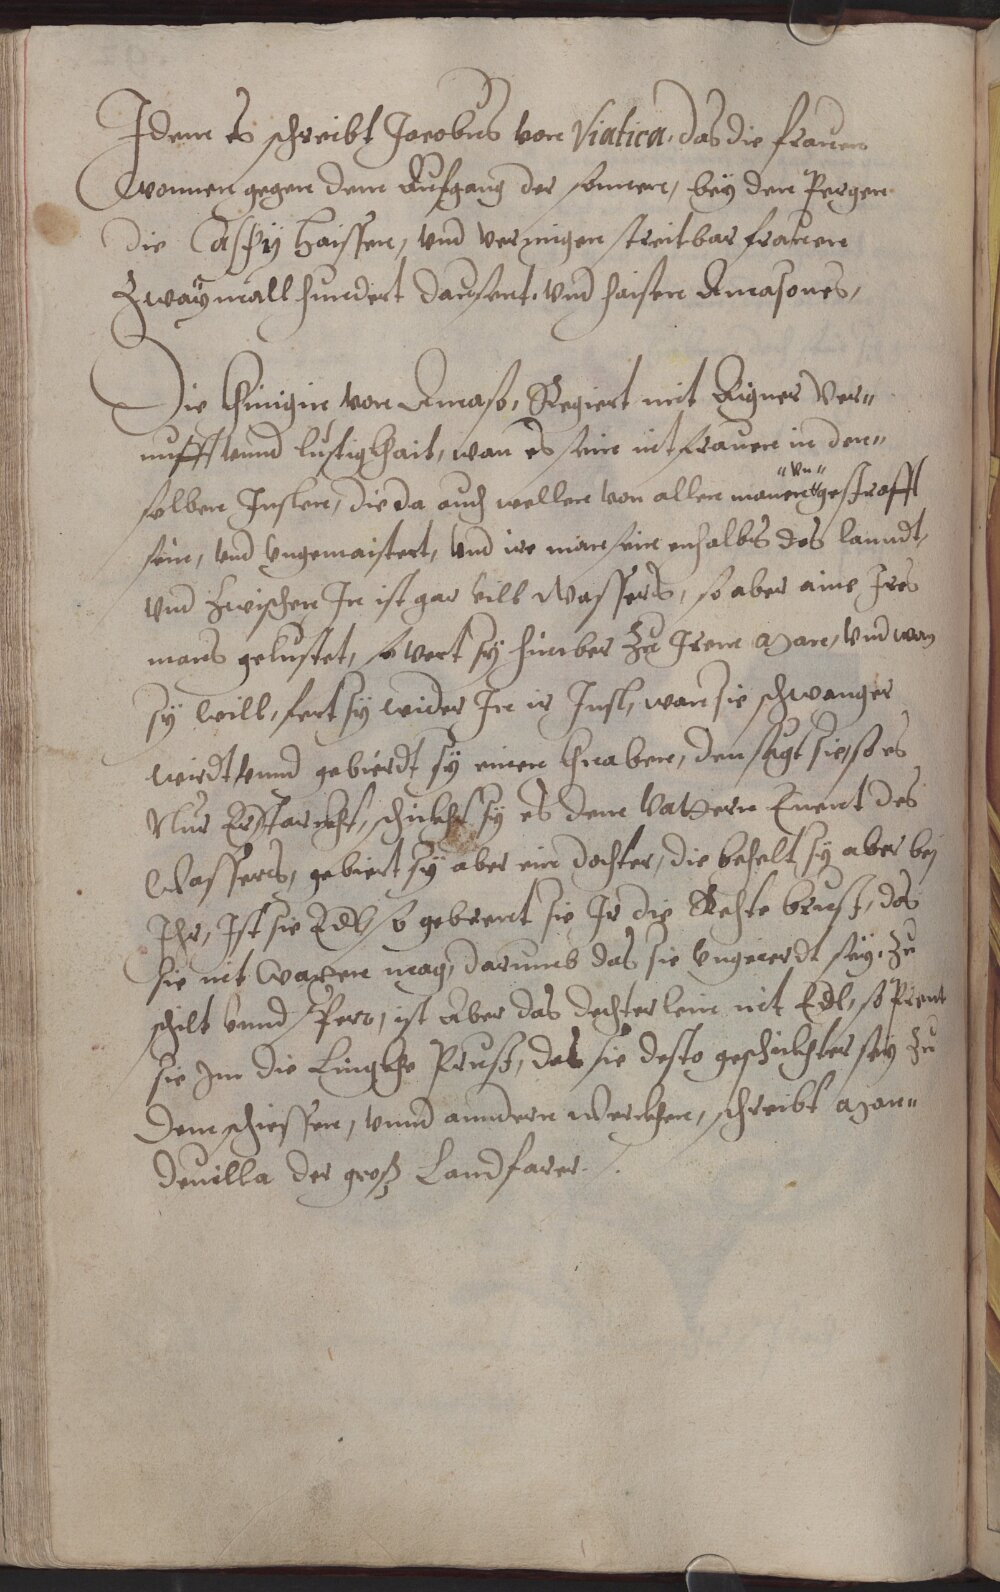 Idem es schreibt Jacobus von Viatica, das die frauen
wonnen gegen dem Aufgang der sonnen, bey den Pergen
die Caspij haissen, und vermigen streitbar frauen
Zwaymall hundert dausent, und haisen Amasones,
Die Khinigin von Amaso, Regiert mit Aigner Ver„
nufft unnd lustigkhait, wan es sein nit frauen in den„
selben Inslen, die da auch wellen von allen manen „un„ gestrafft
sein, und ungemaistert, und ire man sein enhalbs des lanndt,
und Zwischen In ist gar vill Wassers, so aber aine Ires
mans gelustet, so vert sy hinüber Zu Irem Man, und wan
sy will, fert sy wider In ir Insl, wan sie schwanger
wirdt unnd gebierdt sy einen Knaben, den sugt sie, so es
Nur Erstarckht, schickht sy es dem Vattern Enent des
Wassers, gebiert sy aber ein dochter, die behelt sy aber bej
Ihr, Ist sie Edl so gebrent sie Ir die Rechte brust, das
sie nit waxen mag, darumb das sie ungeierdt sey, Zu
schilt unnd sper, ist Aber das dechterlein nit Edl, so Prent
sie Im die Lingkhe Prust, das sie desto geschickhter sey Zu
dem schiessen, unnd anndern werckhen, schreibt Man„
devilla der groß Landfarer.